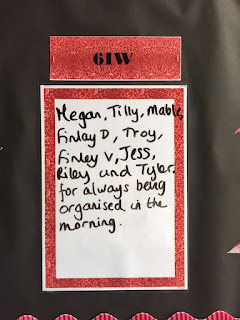 61W
Megan, Tilly, Mable,
Finlay D, Troy,
Finley V, Jess,
Riley and Tyler.
for always being
organised in the
morning.